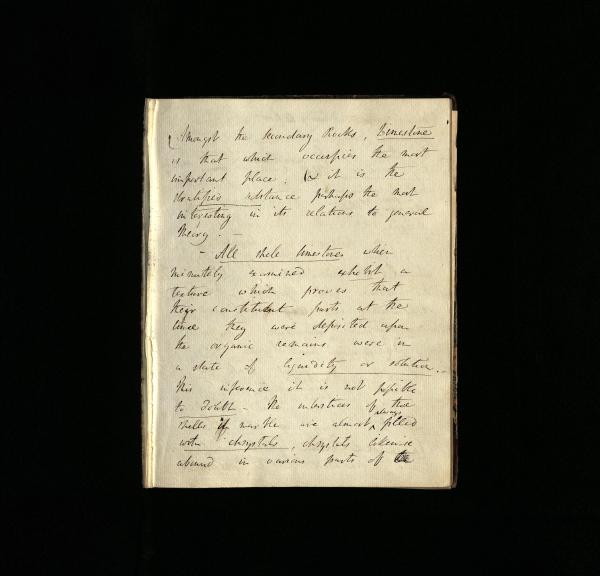 Amongst the secondary Rocks, Limestone
is that which occupies the most
important place. & it is the
stratified substance perhaps the most
interesting in its relations to general
theory. —
– All shell limestones when
minutely examined exhibit a
texture which proves that
their constituent parts at the
time they were deposited upon
the organic remains were in
a state of liquidity or solution. –
This inference it is not possible
to doubt – The interstices of the
always
shells in marble are almost ^ filled
with chrystals, chrystals likewise
abound in various parts of the